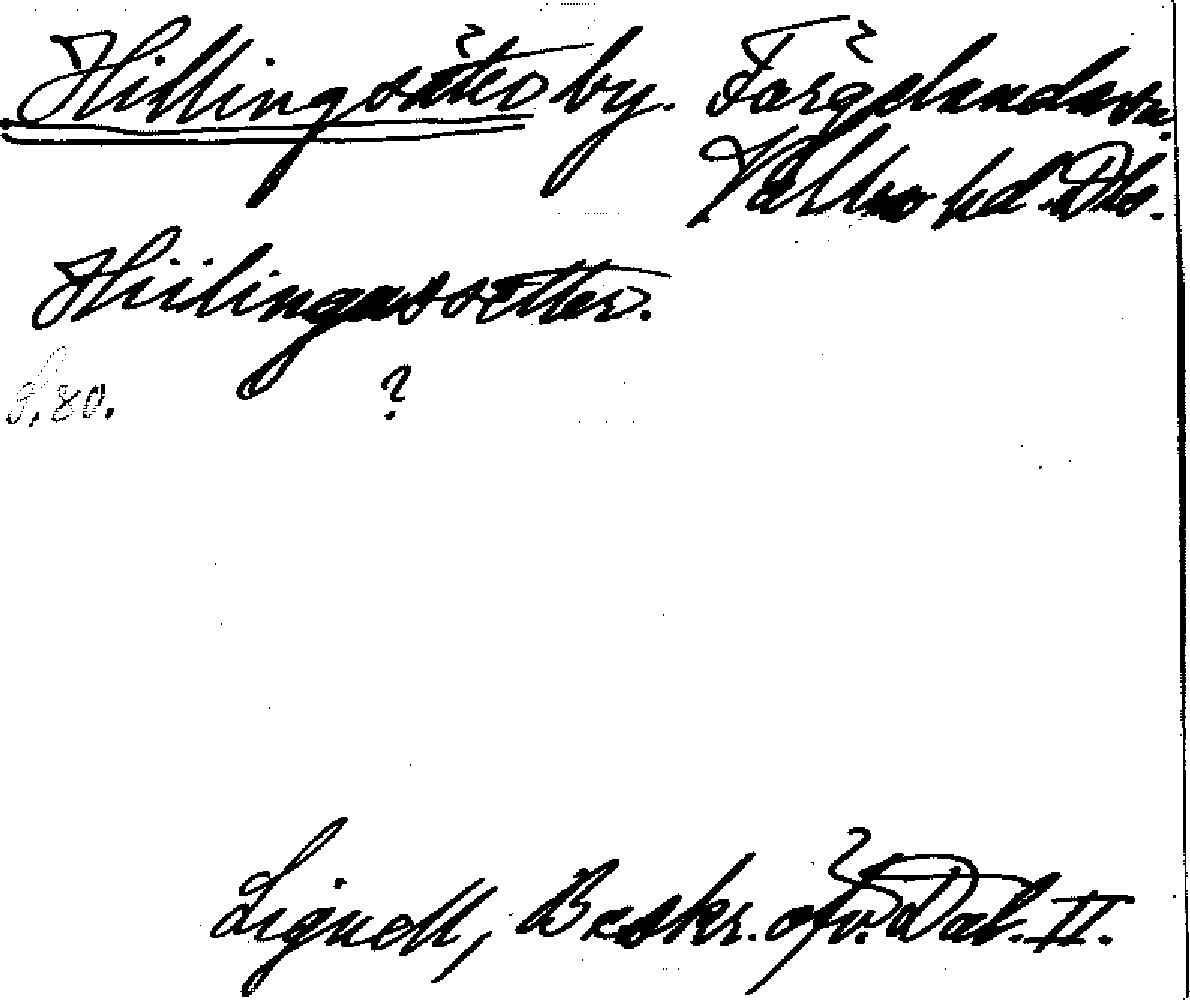 Hillingsäter by. Färgelanda sn.
Valbo hd. Dls.
Hiilingassetter.
S. 80. ?
Lignell, Beskr. öfv. Dal. II.